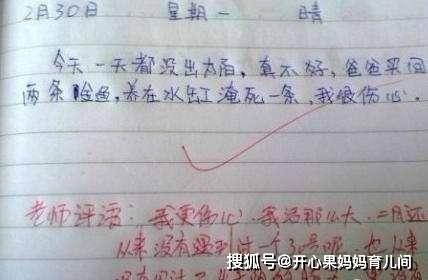 2月30日 星期一 晴
今天一天都没出太阳,真不好,爸爸买回
两条金鱼,养在水缸淹死一条,我很伤心.
老师评语:我更伤心,我活那么大,二月还
从来没有遇到过一个30号呢,也从来
搜狐号@开心果妈妈育儿间